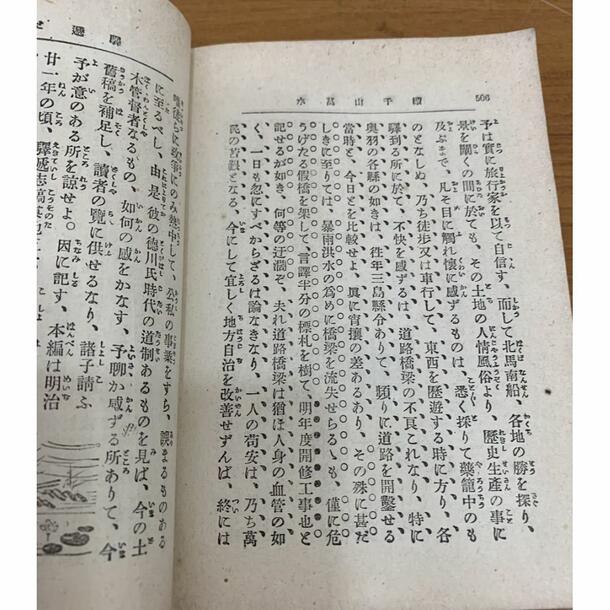 506
水萬山千曝
予は實に旅行家を以て自信す、而して北馬南船、各地の勝を探り、
景を闚くの間に於ても、その土地の人情風俗より、歷史生產の事に
及ぶまで、凡そ目に觸れ懷に感ずるものは、悉く採りて藥籠中のも
のとなしぬ、乃ち徒歩又は車行して、東西を歷遊する時に方り、各
驛到る所に於て、不快を感ずるは、道路橋梁の不良これなり、特に
奧羽の各縣の如きは、往年三島縣分ありて、頻りに道路を開鑿せる
當時と、今日とを比較せよ、眞に霄壤の差あるあり、その殊に甚だ
しきに至りては、暴雨洪水の爲めに橋梁を流失せらるゝも、僅に危
うけたる假橋を架して、言譯半分の標札を樹て、明年度開修工事也と
記せるが如き、何等の迂濶ぞ、夫れ道路橋梁は猶ほ人身の血管の如
く、一日も忽にすべからざるは論なきなり、一人の苟安は、乃ち萬
民の苦觀となる、今にして宜しく地方自治を改善せずんば、終には
驛遞
徒らに政爭にのみ熱中して、公私の事業をすら、誤まるものある
に至るべし、由是彼の德川氏時代の道制あるものを見ば、今の土
木管督者なるもの、如何の感をかなす、予聊か感ずる所ありて、今
舊稿を補足し、讀者の覽に供せるなり、諸子請ふ
予が意のある所を諒せよ。因に記す、本編は明治
廿一年の頃、驛遞志稿其他